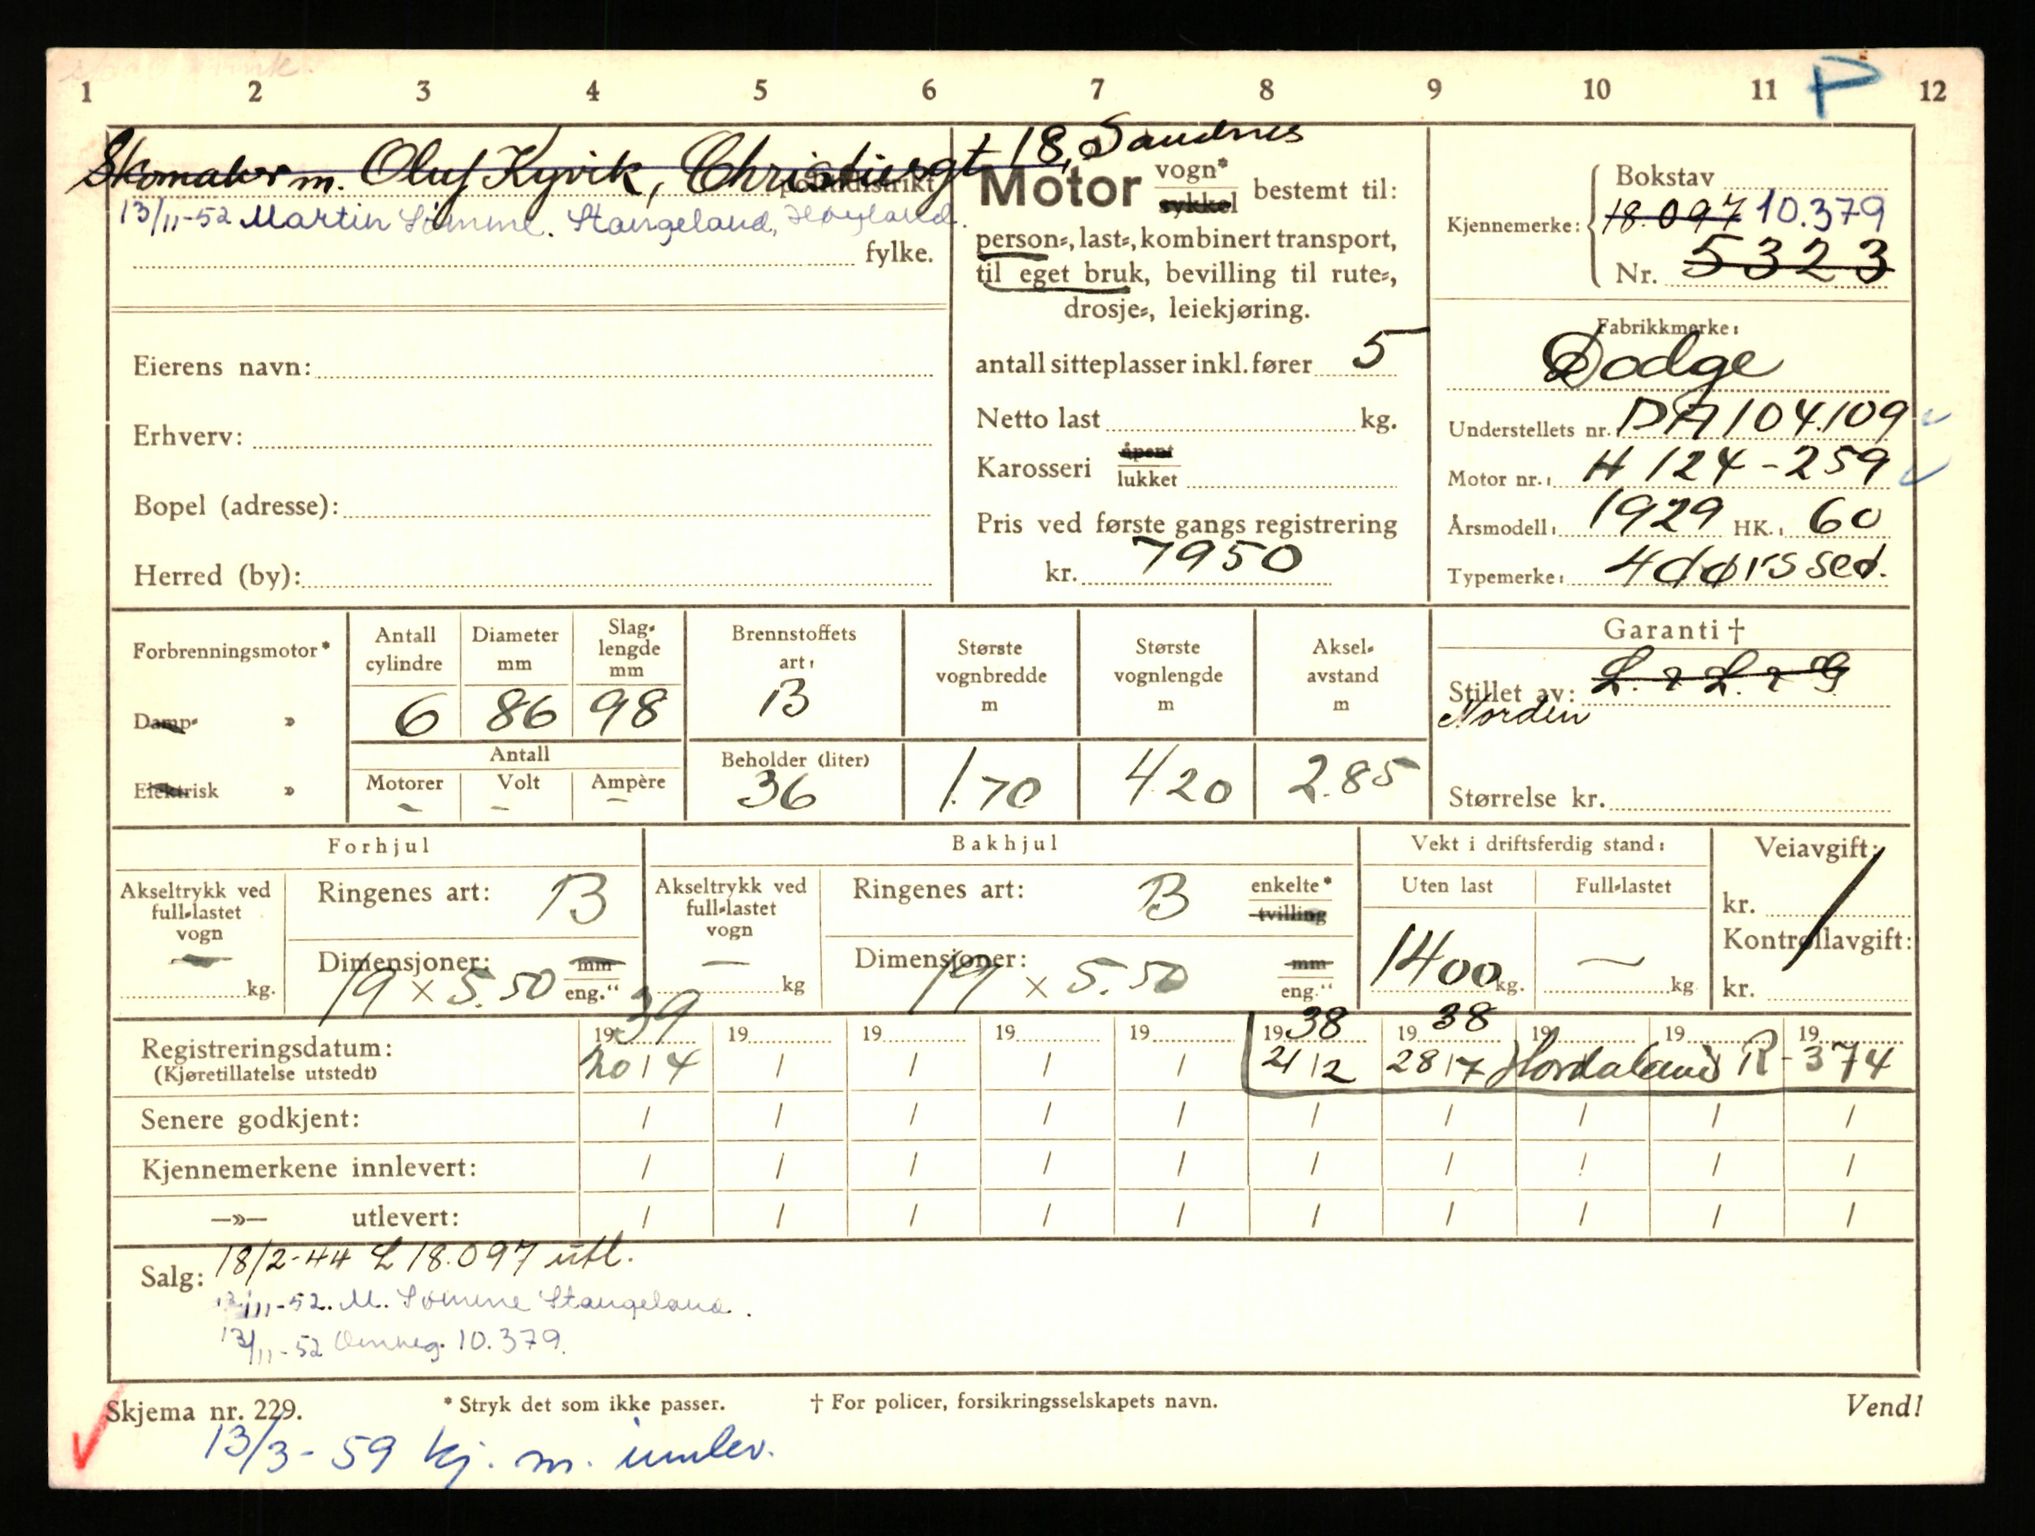 1 2 3 4 5 6 7 8 9 10 11 12
Skomakerm. Oluf Kyvik, Christiersgt 18, Sandnes
politidistrikt
13/11-52 Martin Sømme. Stangeland, Høyland.
fylke.
Eierens navn:
Erhverv:
Bopel (adresse):
Herred (by):
Motor vogn* sykkel bestemt til:
person-, last-, kombinert transport,
til eget bruk, bevilling til rute-,
drosje-, leiekjøring.
antall sitteplasser inkl. fører 5
Netto last kg.
Karosseri åpent lukket
Pris ved første gangs registrering
kr. 7950
Bokstav
Kjennemerke: 18.097 10.379
Nr. 5323
Fabrikkmerke:
Dodge
Understellets nr. DA104.109
Motor nr.: H 124-259
Årsmodell: 1929 HK.: 60
Typemerke: 4 dørs sed.
Forbrenningsmotor*
Damp- »
Elektrisk »
Antall cylindre 6
Diameter mm 86
Slag-lengde mm 98
Antall
Motorer - Volt - Ampère -
Brennstoffets art: B
Beholder (liter) 36
Største vognbredde m 1.70
Største vognlengde m 4.20
Aksel-avstand m 2.85
Garanti †
Stillet av: L. & L. & G
Norden
Størrelse kr.
Forhjul
Akseltrykk ved full-lastet vogn — kg.
Ringenes art: B
Dimensjoner: 19 x 5.50 mm eng."
Bakhjul
Akseltrykk ved full-lastet vogn — kg
Ringenes art: B enkelte* tvilling
Dimensjoner: 19 x 5.50 mm eng."
Vekt i driftsferdig stand:
Uten last 1400 kg.
Full-lastet — kg
Veiavgift:
kr.
Kontrollavgift:
kr.
19 39 19 19 19 19 19 38 19 38 19 19 19
Registreringsdatum: 20/4 / / / / 21/2 28/7 Hordaland R-374
(Kjøretillatelse utstedt)
Senere godkjent: / / / / / / / / / /
Kjennemerkene innlevert: / / / / / / / / / /
—»— utlevert: / / / / / / / / / /
Salg: 18/2-44 L 18.097 utl.
13/11-52. M. Sømme Stangeland.
13/11-52 Omreg. 10.379.
Skjema nr. 229. * Stryk det som ikke passer. † For policer, forsikringsselskapets navn. Vend!
13/3-59 kj. m. innlev.